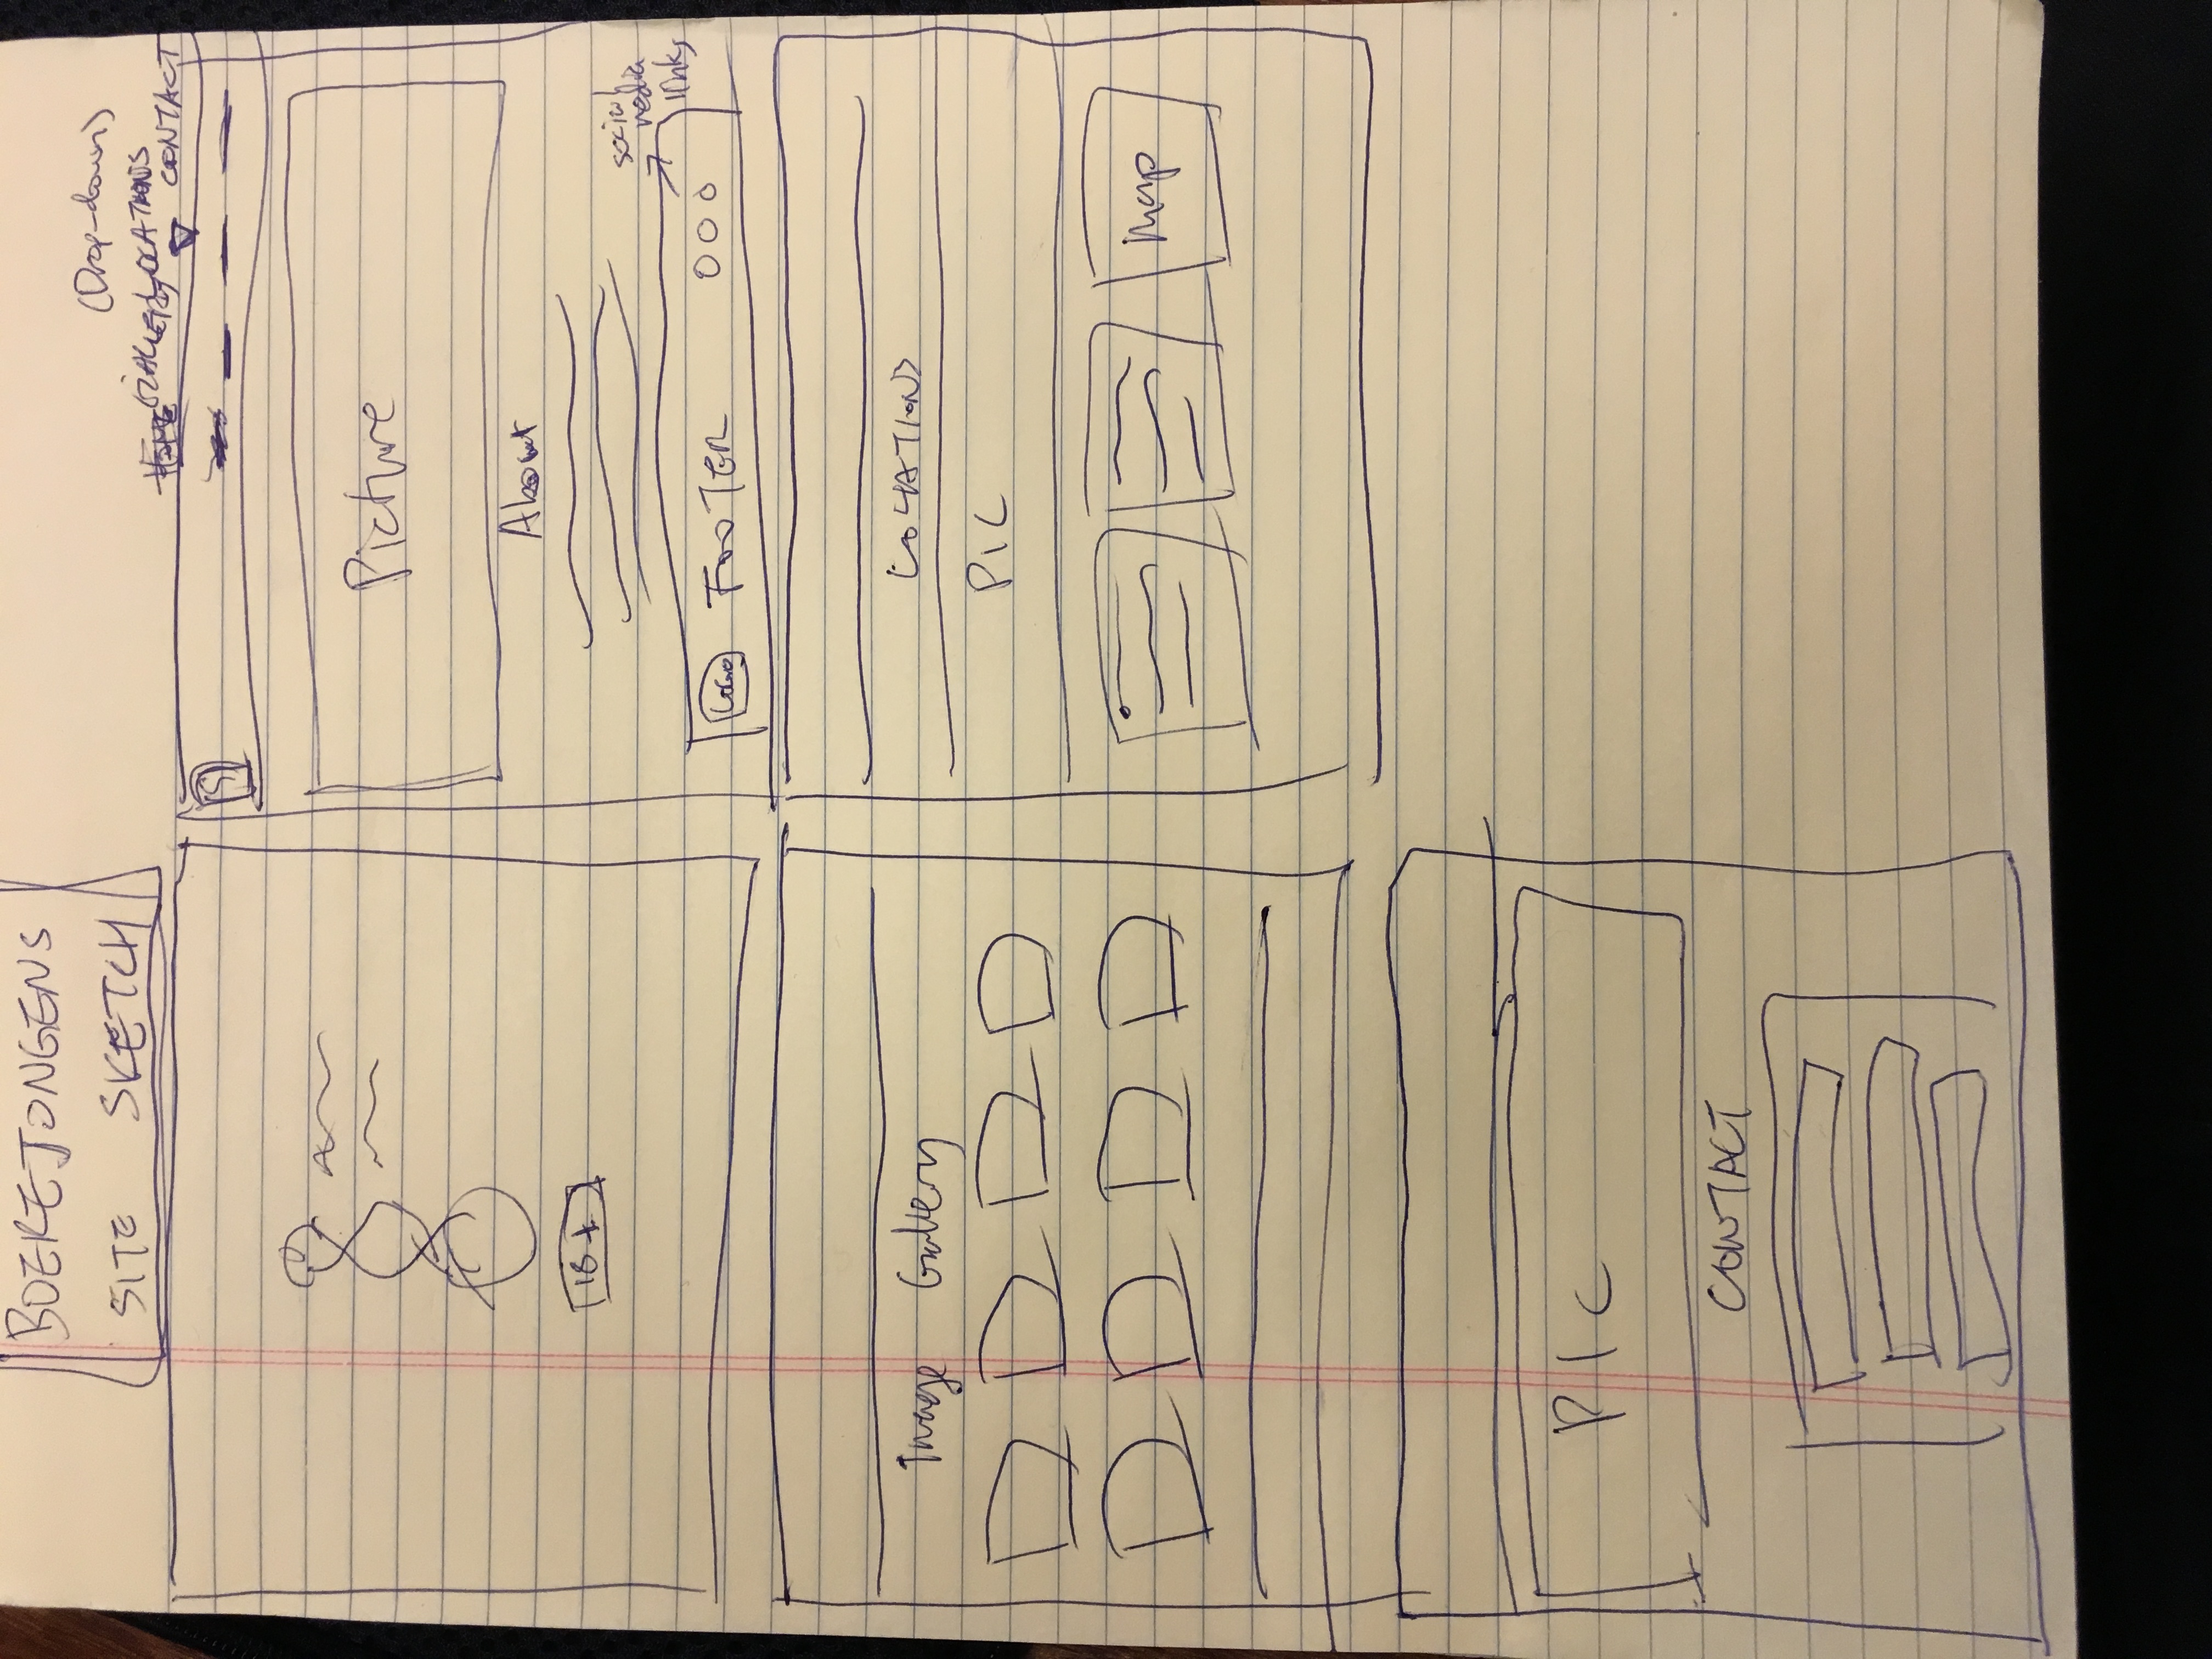 BOEREJONGENS
SITE SKETCH
18+
(Drop-down)
HOME GALLERY LOCATIONS CONTACT
Picture
About
social
media
links
Logo FOOTER
Image Gallery
LOCATIONS
PIC
Map
PIC
CONTACT